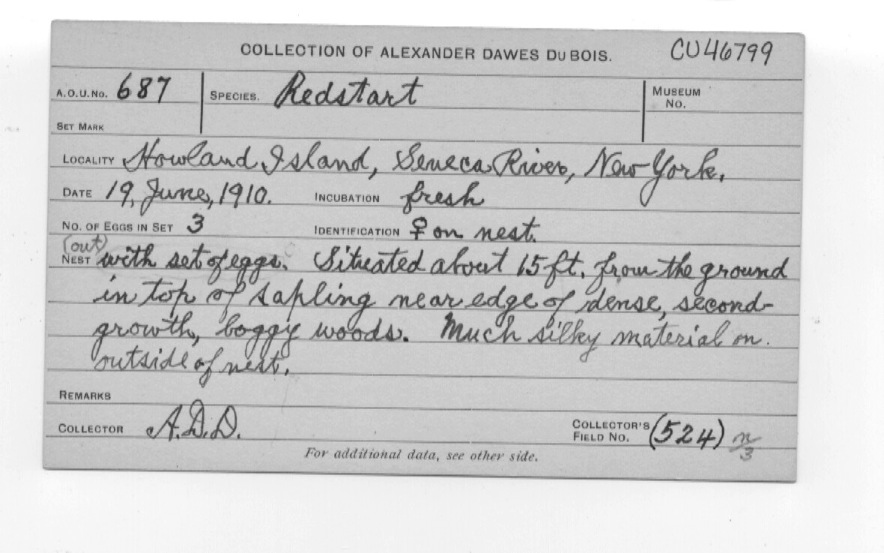 COLLECTION OF ALEXANDER DAWES DU BOIS. CU46799
A.O.U. No. 687 SPECIES. Redstart MUSEUM No.
SET MARK
LOCALITY Howland Island, Seneca River, New York.
DATE 19, June, 1910. INCUBATION fresh
NO. OF EGGS IN SET 3 IDENTIFICATION ♀ on nest.
(out)
NEST with set of eggs. Situated about 15 ft. from the ground
in top of sapling near edge of dense, second-
growth, boggy woods. Much silky material on
outside of nest.
REMARKS
COLLECTOR A.D.D. COLLECTOR'S FIELD NO. (524) n/3
For additional data, see other side.